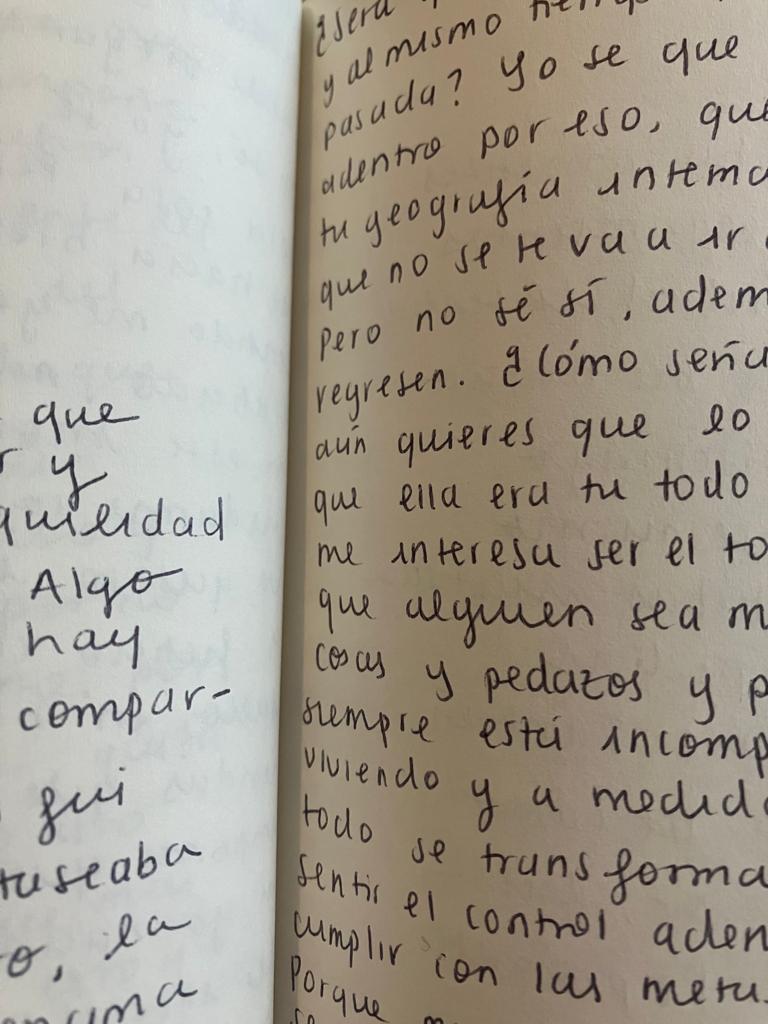 que
y
Algo
hay
compar-
fui
la
¿será
y al mismo
pasada? Yo se que
adentro por eso, que
tu geografía interna
que no se te va a ir
Pero no sé sí, adem
regresen. ¿Cómo
aún quieres que lo
que ella era tu todo
me interesa ser el to
que alguien sea m
cosas y pedazos y p
siempre está incomp
viviendo y a medida
todo se transforma
sentir el control aden
cumplir con las meta
Porque
se